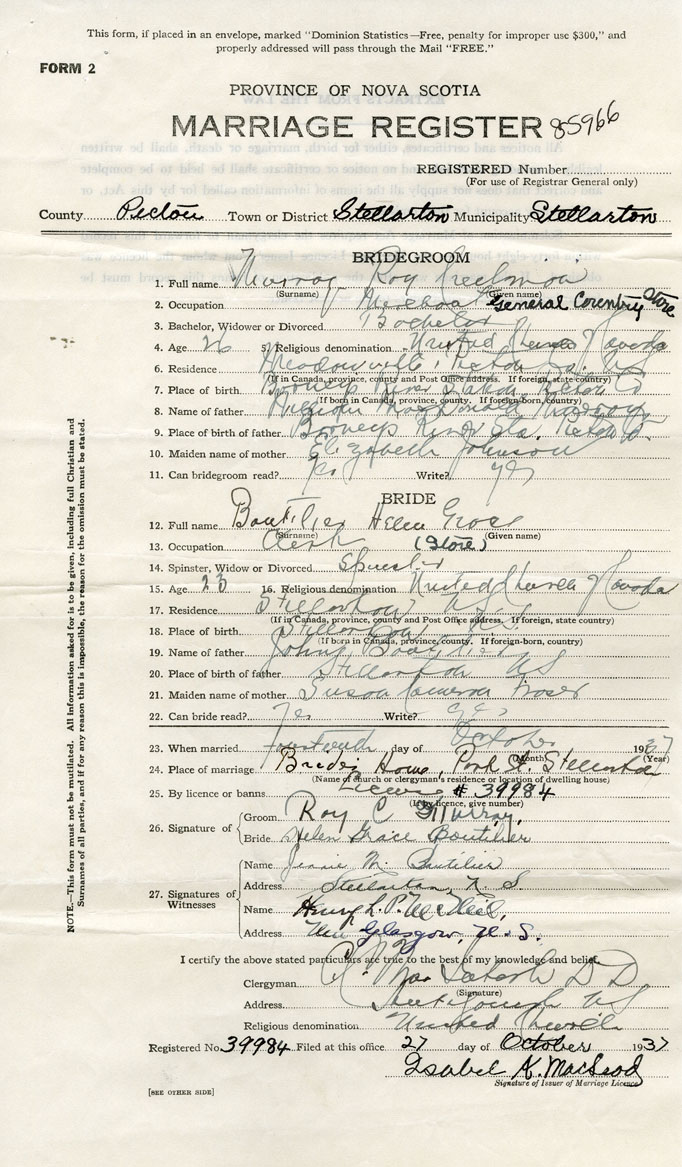 This form, if placed in an envelope, marked "Dominion Statistics—Free, penalty for improper use $300," and
properly addressed will pass through the Mail "FREE."
FORM 2
PROVINCE OF NOVA SCOTIA
MARRIAGE REGISTER 85966
REGISTERED Number
(For use of Registrar General only)
County Pictou Town or District Stellarton Municipality Stellarton
BRIDEGROOM
1. Full name Murray Roy Creelman
(Surname) (Given name)
2. Occupation Merchant General Country Store
3. Bachelor, Widower or Divorced Bachelor
4. Age 26 5. Religious denomination United Church Canada
6. Residence Meadowville, Pictou Co. NS
(If in Canada, province, county and Post Office address. If foreign, state country)
7. Place of birth River Pictou Co
(If born in Canada, province, county. If foreign-born, country)
8. Name of father William MacDonald Murray
9. Place of birth of father River Pictou Co.
10. Maiden name of mother Elizabeth Johnson
11. Can bridegroom read? Yes Write? yes
BRIDE
12. Full name Boutilier Helen Grace
(Surname) (Given name)
13. Occupation Clerk (Store)
14. Spinster, Widow or Divorced Spinster
15. Age 23 16. Religious denomination United Church Canada
17. Residence Stellarton NS
(If in Canada, province, county and Post Office address. If foreign, state country)
18. Place of birth Stellarton
(If born in Canada, province, county. If foreign-born, country)
19. Name of father Boutilier
20. Place of birth of father Stellarton NS
21. Maiden name of mother Susan Cameron Fraser
22. Can bride read? Yes Write? yes
23. When married fourteenth day of October 1937
(Month) (Year)
24. Place of marriage Brides Home, Stellarton
(Name of church or clergyman's residence or location of dwelling house)
25. By licence or banns Licence # 39984
(If by licence, give number)
26. Signature of
Groom Roy C Murray,
Bride Helen Grace Boutilier
27. Signatures of
Witnesses
Name Jennie M. Boutilier
Address Stellarton, N.S.
Name Henry L. P. McNeil,
Address New Glasgow, N.S.
I certify the above stated particulars are true to the best of my knowledge and belief.
Clergyman D D
(Signature)
Address NS
Religious denomination United Church
Registered No. 39984 Filed at this office 27 day of October 1937
Isabel K. MacLeod
Signature of Issuer of Marriage Licence
[SEE OTHER SIDE]
NOTE.—This form must not be mutilated. All information asked for is to be given, including full Christian and
Surnames of all parties, and if for any reason this is impossible, the reason for the omission must be stated.